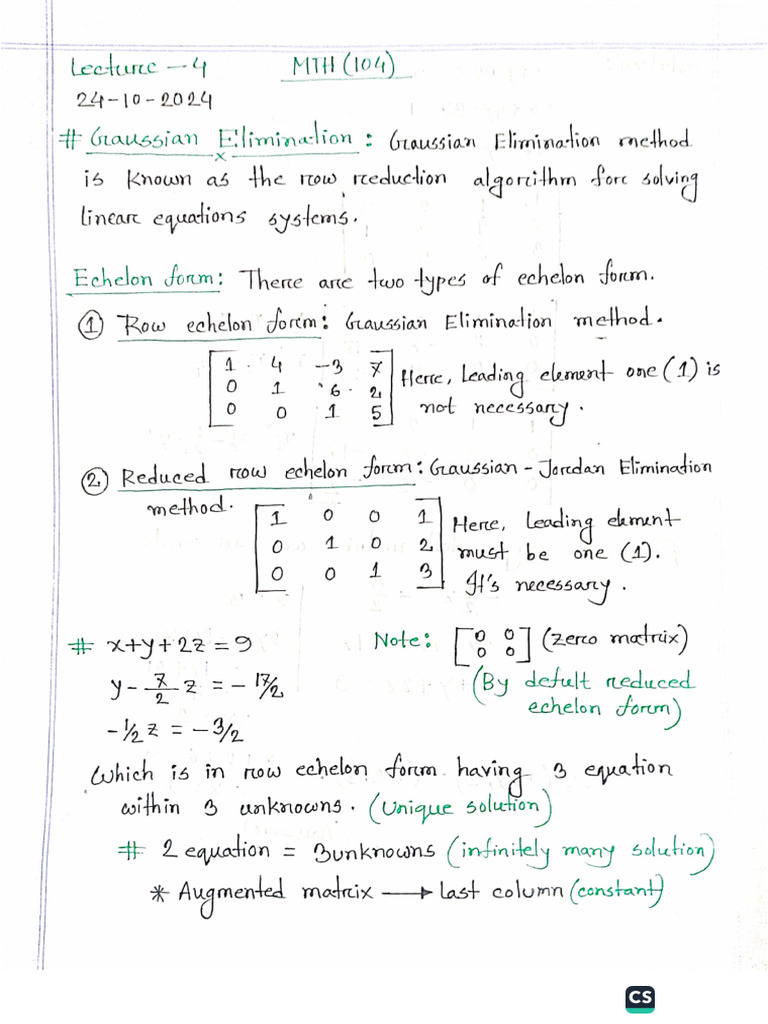 Lecture - 4 MTH (104)
24-10-2024
# Gaussian Elimination : Gaussian Elimination method
is known as the row reduction algorithm for solving
linear equations systems.
Echelon form : There are two types of echelon form.
① Row echelon form : Gaussian Elimination method.
[1 4 -3 7
0 1 6 2
0 0 1 5]
Here, Leading element one (1) is
not necessary.
② Reduced row echelon form : Gaussian - Jordan Elimination
method.
[1 0 0 1
0 1 0 2
0 0 1 3]
Here, Leading element
must be one (1).
It's necessary.
# x+y+2z = 9
y - 7/2 z = - 17/2
-1/2 z = -3/2
Note: [0 0
0 0] (zero matrix)
(By defult reduced
echelon form)
Which is in row echelon form having 3 equation
within 3 unknowns. (Unique solution)
# 2 equation = 3unknowns (infinitely many solution)
* Augmented matrix → last column (constant)
CS